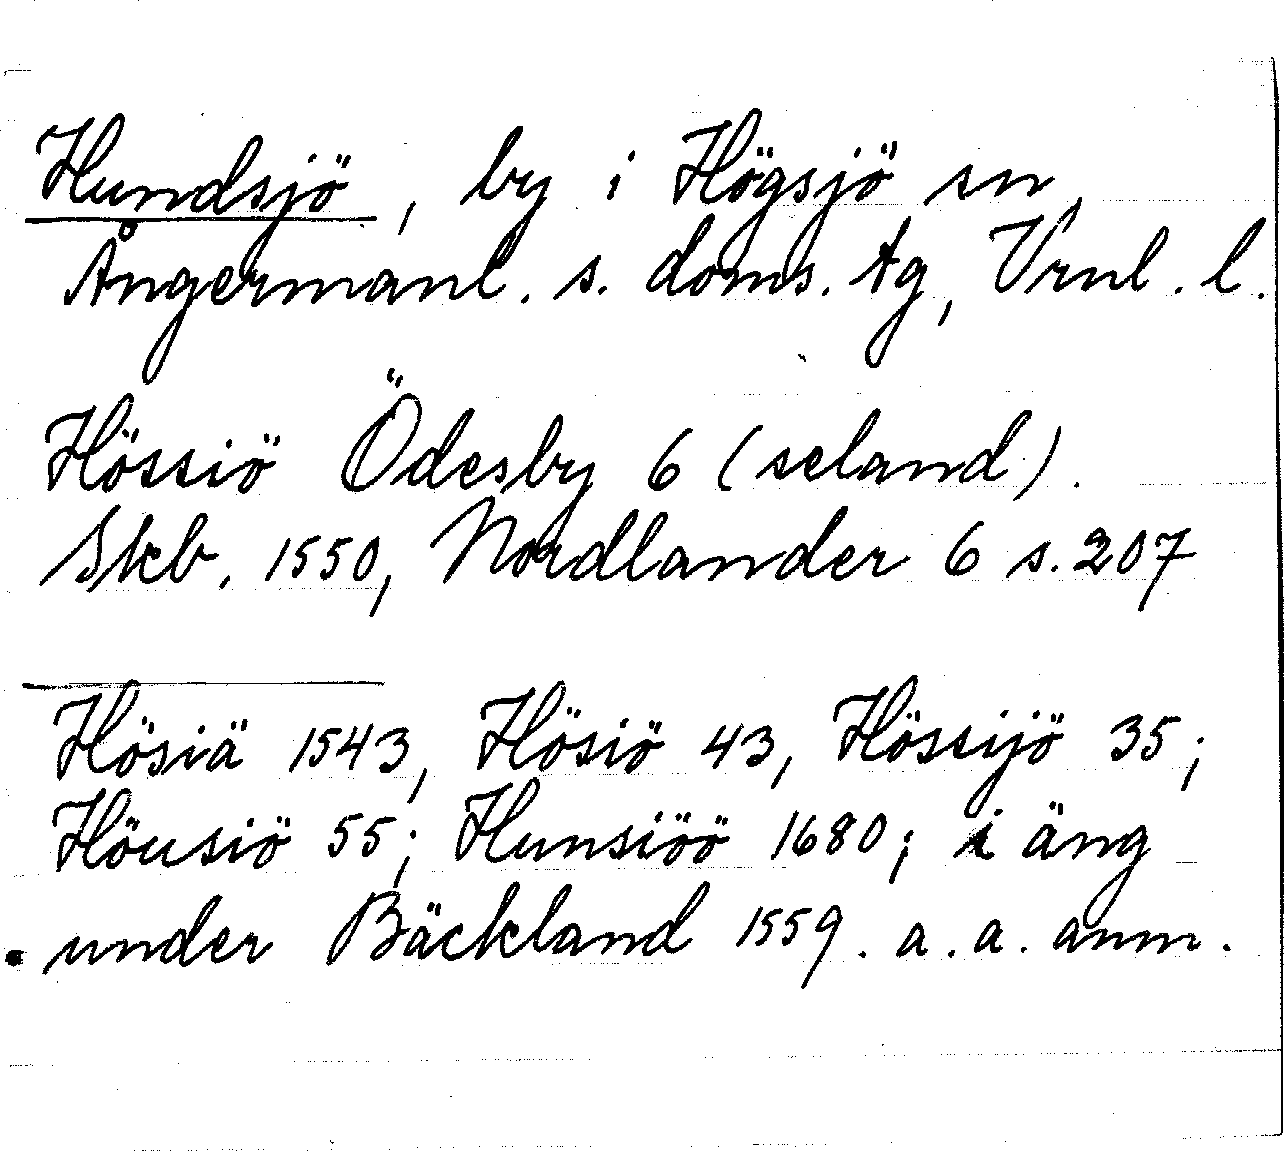 Hundsjö, by i Högsjö sn,
Ångermanl. s. doms. tg, Vrnl. l.
Hössiö Ödesby 6 (seland).
Skb. 1550, Nordlander 6 s. 207
Hösiä 1543, Hösiö 43, Hössijö 35;
Höusiö 55; Hunsiöö 1680; i äng
under Bäckland 1559. a. a. anm.